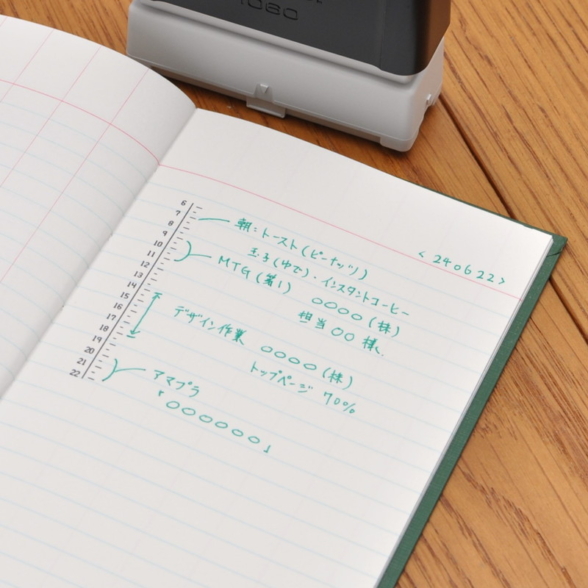 1080
<240622>
6
7
8
9
10
11
12
13
14
15
16
17
18
19
20
21
22
朝:トースト(ピーナッツ)
玉子(ゆで)・インスタントコーヒー
MTG(第1) ○○○○(株)
担当○○様、
デザイン作業 ○○○○(株)
トップページ 70%
アマプラ
「○○○○○○」